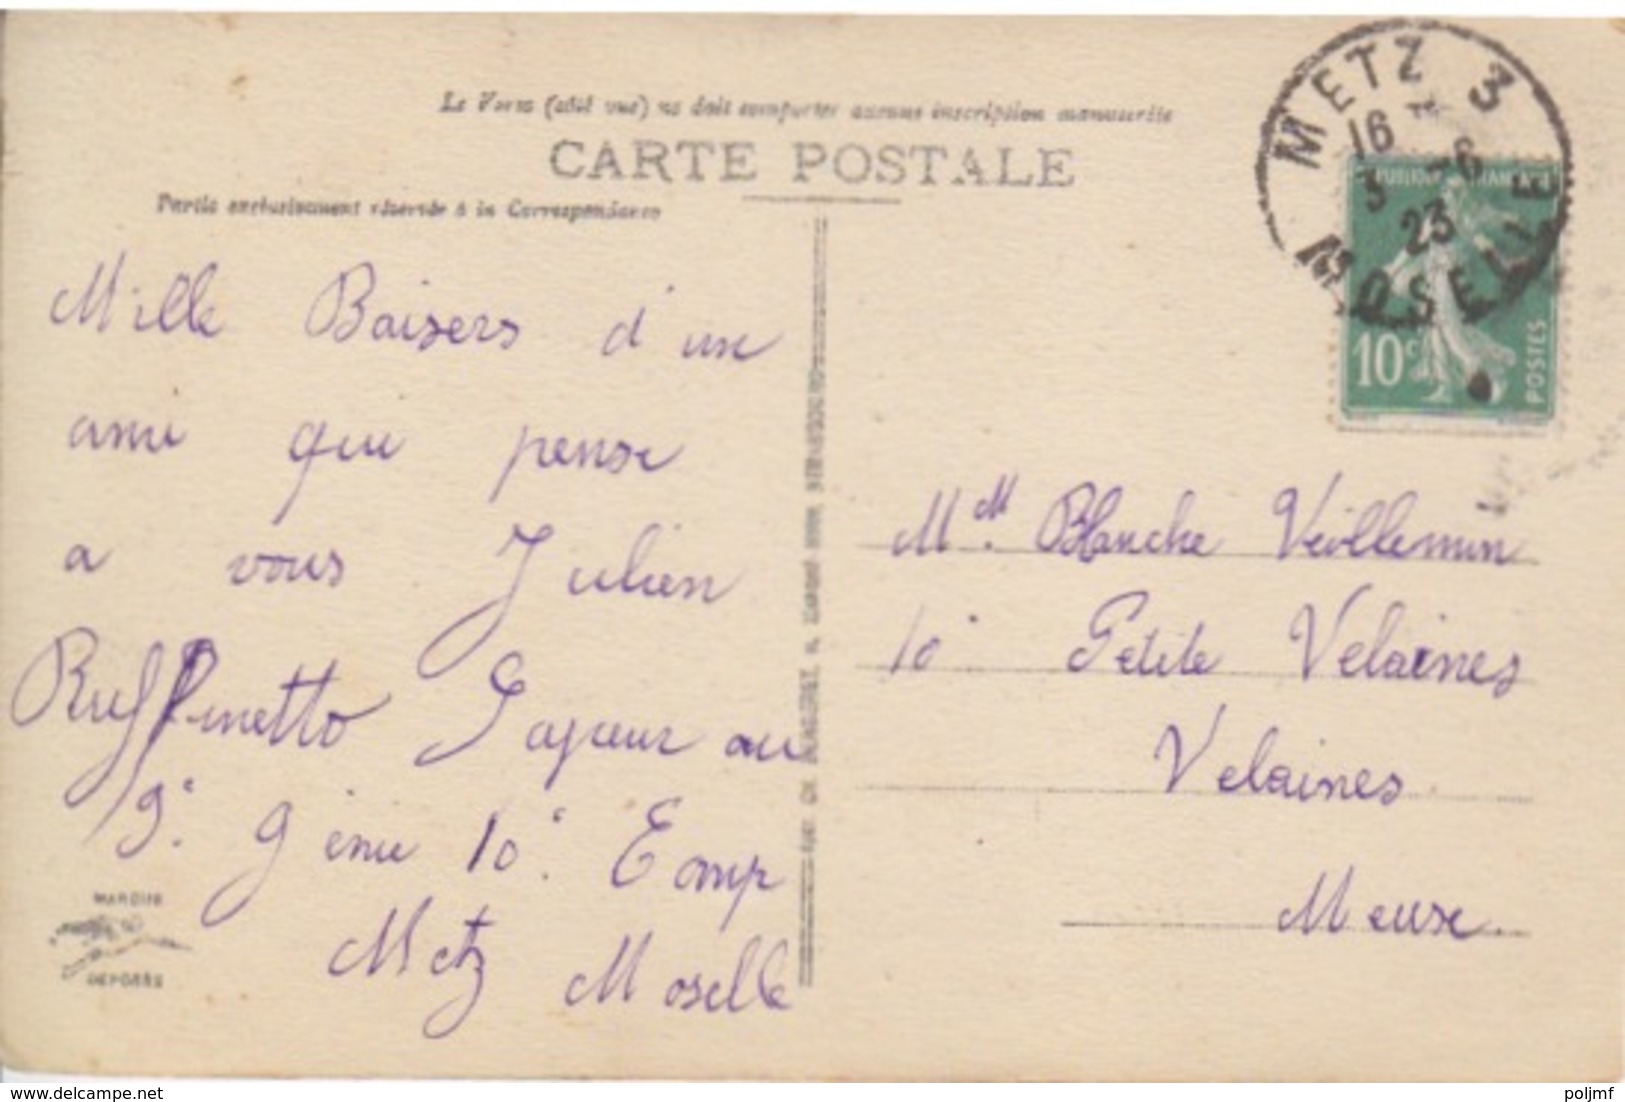 Le Verso (côté vue) ne doit comporter aucune inscription manuscrite
CARTE POSTALE
Partie exclusivement réservée à la Correspondance
METZ 3
16
3 -6
23
MOSELLE
10c
POSTES
Mille Baisers d'un
ami qui pense
a vous Julien
Ruffinetto Sapeur au
9e Génie 10e Comp
Metz Moselle
MARQUE
DÉPOSÉE
Mlle Blanche Veillemin
10 Petite Velaines
Velaines
Meuse.
www.delcampe.net
poljmf